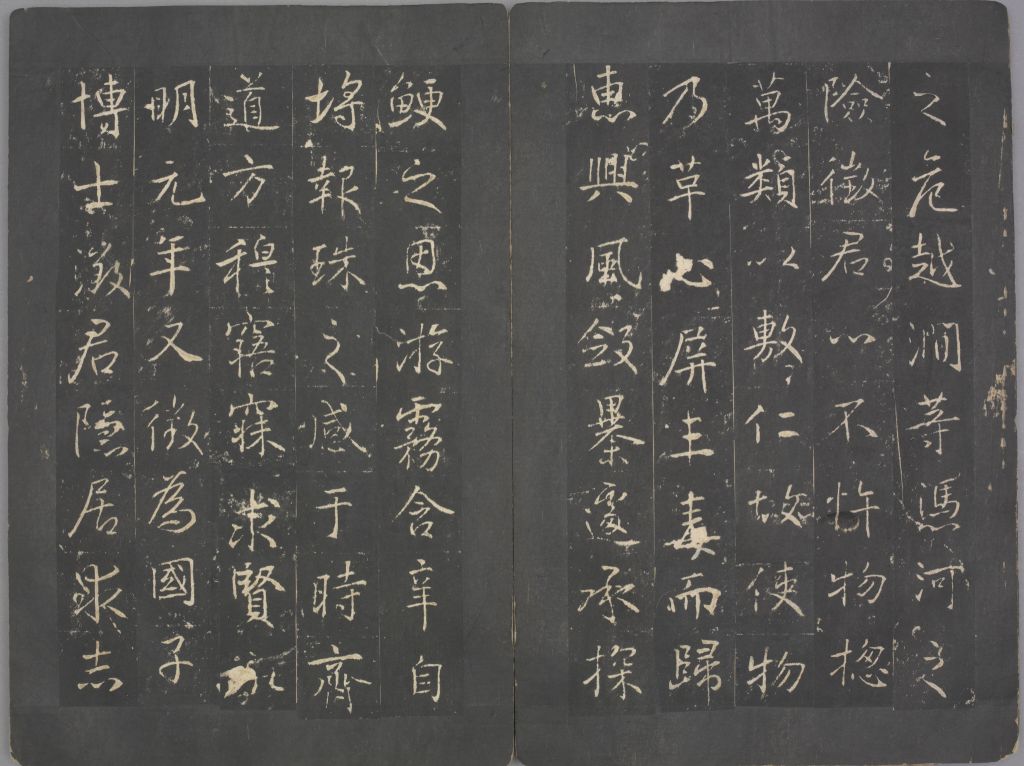 之危越澗等馮河之
險徵君心不忤物惣
萬類以敷仁故使物
乃革心屏三毒而歸
惠興風斂暴遂承探
鯁之恩游霧含辛自
埒報珠之感于時齊
道方穆寤寐求賢永
明元年又徵為國子
博士徵君隱居求志